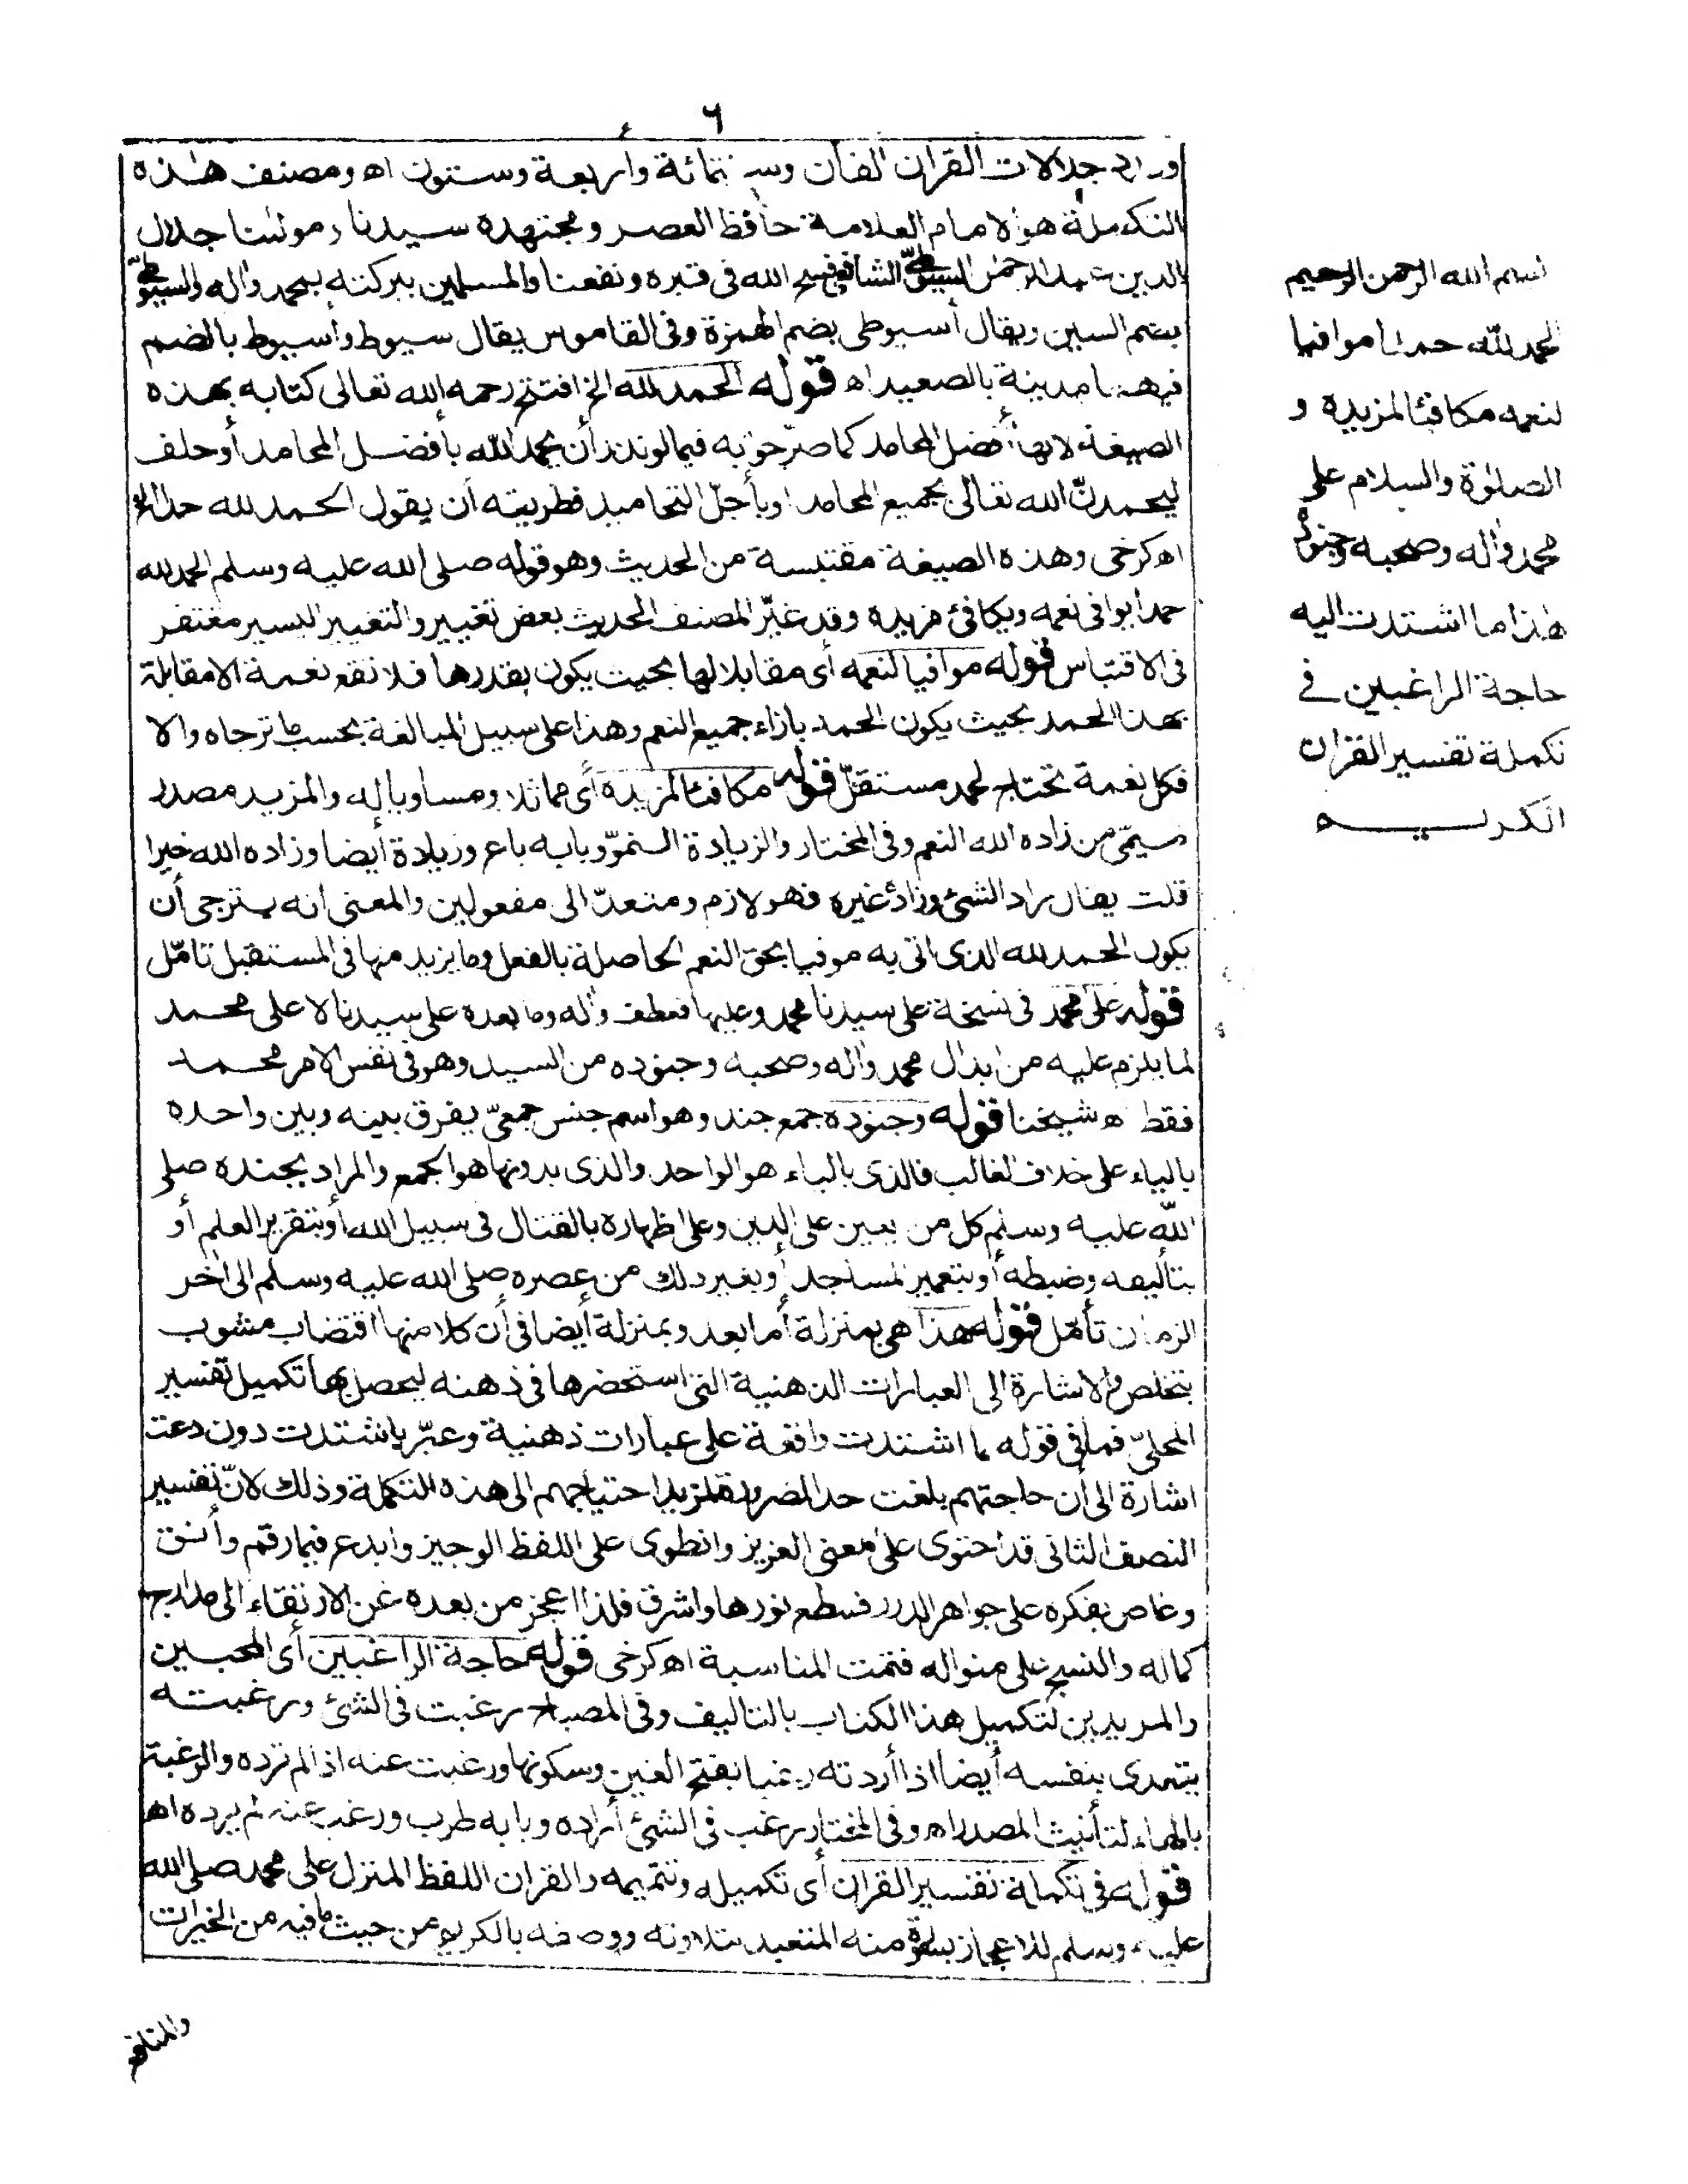 ٦
وراد جلالات القران الفان وستمائة وأربعة وستون اه ومصنف هذه
التكملة هو الامام العلامة حافظ العصر ومجتهده سيدنا ومولنا جلال
الدين عبد الرحمن السيوطيّ الشافعي فسح الله في قبره ونفعنا والمسلمين ببركته بمحمد واله والسيوطيّ
بضم السين ويقال أسيوطى بضم الهمزة وفى القاموس يقال سيوط وأسيوط بالضم
فيهما مدينة بالصعيد اه قوله الحمد لله الخ افتتح رحمه الله تعالى كتابه بهذه
الصيغة لانها أفضل المحامد كما صرّحو به فيما لو نذر أن يحمد الله بأفضل المحامد أو حلف
ليحمدنّ الله تعالى بجميع المحامد او بأجلّ التحاميد فطريقه أن يقول الحمد لله حمدا الخ
اه كرخى وهذه الصيغة مقتبسة من الحديث وهو قوله صلى الله عليه وسلم الحمد لله
حمدا يوافى نعمه ويكافئ مزيده وقد غيّر المصنف الحديث بعض تغيير والتغيير اليسير مغتفر
فى الاقتباس قوله موافيا لنعمه أى مقابلا لها بحيث يكون بقدرها فلا تقع نعمة الا مقابلة
بهذا الحمد بحيث يكون الحمد بازاء جميع النعم وهذا على سبيل المبالغة بحسب ما ترجاه والا
فكل نعمة تحتاج لحمد مستقلّ قوله مكافئا لمزيده أى مماثلا ومساويا له والمزيد مصدر
ميمّى من زاده الله النعم وفى المختار والزيادة النموّ وبابه باع وزيادة أيضا وزاده الله خيرا
قلت يقال زاد الشئ وزاده غيره فهو لازم ومتعدّ الى مفعولين والمعنى أنه يترجى أن
يكون الحمد لله الذى اتى به موفيا بحق النعم الحاصلة بالفعل وما يزيد منها فى المستقبل تامّل
قوله على محمد فى نسخة على سيدنا محمد وعليها فعطف واله وما بعده على سيدنا لا على محمد
لما يلزم عليه من ابدال محمد واله وصحبه وجنوده من السيد وهو فى نفس الامر محمد
فقط اه شيخنا قوله وجنوده جمع جند وهو اسم جنس جمعىّ يفرق بينه وبين واحده
بالياء على خلاف الغالب فالذى بالياء هو الواحد والذى بدونها هو الجمع والمراد بجنده صلى
الله عليه وسلم كل من يعين على الدين وعلى اظهاره بالقتال فى سبيل الله أو بتقرير العلم أو
بتأليفه وضبطه أو بتعمير المساجد أو بغير ذلك من عصره صلى الله عليه وسلم الى اخر
الزمان تأمّل قوله هذا هى بمنزلة أما بعد وبمنزلة أيضا فى أن كلا منها اقتضاب مشوب
بتخلص والاشارة الى العبارات الذهنية التى استحضرها فى ذهنه ليحصل بها تكميل تفسير
المحلىّ فما فى قوله ما اشتدت واقعة على عبارات ذهنية وعبّر باشتدت دون دعت
اشارة الى أن حاجتهم بلغت حد الضرورة لمزيد احتياجهم الى هذه التكملة وذلك لانّ تفسير
النصف الثانى قد احتوى على معنى العزيز وانطوى على اللفظ الوجيز وابدع فيما رقم وأنق
وغاص بفكره على جواهر الدرر فسطع نورها واشرق فلذا اعجز من بعده عن الارتقاء الى مدارج
كماله والنسج على منواله فتمت المناسبة اه كرخى قوله حاجة الراغبين أى المحبين
والمريدين لتكميل هذا الكتاب بالتاليف وفى المصباح رغبت فى الشئ ورغبته
يتعدى بنفسه أيضا اذا أردته رغبا بفتح الغين وسكونها ورغبت عنه اذا لم ترده والرغبة
بالهاء لتأنيث المصدر اه وفى المختار رغب فى الشئ أراده وبابه طرب ورغب عنه لم يرده اه
قوله فى تكملة تفسير القران أى تكميله وتتميمه والقران اللفظ المنزل على محمد صلى الله
عليه وسلم للاعجاز بسورة منه المتعبد بتلاوته ووصفه بالكريم من حيث ما فيه من الخيرات
والمنافع
بسم الله الرحمن الرحيم
الحمد لله حمدا موافيا
لنعمه مكافئا لمزيده و
الصلوة والسلام على
محمد واله وصحبه وجنوده
هذا ما اشتدت اليه
حاجة الراغبين في
تكملة تفسير القران
الكريم